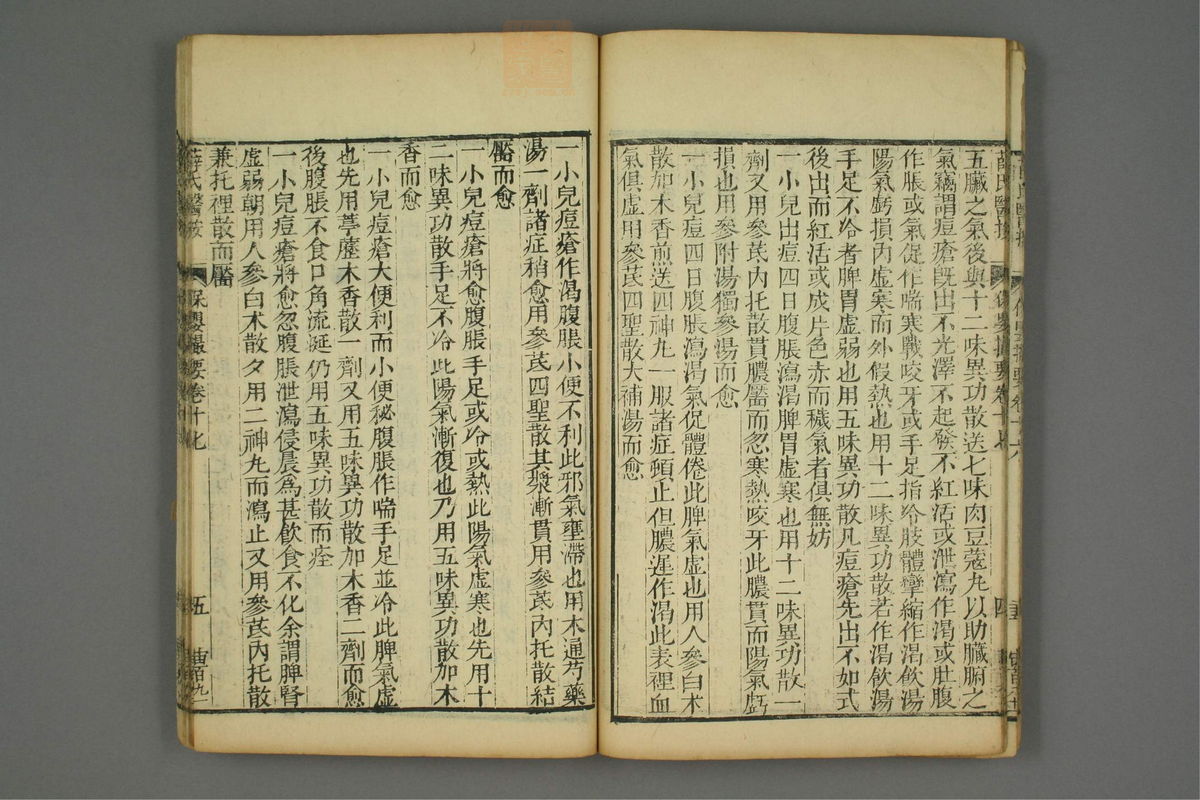 五臟之氣後與十二味異功散送七味肉豆蔻丸以助臟腑之
氣竊謂痘瘡旣出不光澤不起發不紅活或泄瀉作渴或肚腹
作脹或氣促作喘寒戰咬牙或手足指冷肢體攣縮作渴飲湯
陽氣虧損內虛寒而外假熱也用十二味異功散若作渴飲湯
手足不冷者脾胃虛弱也用五味異功散凡痘瘡先出不如式
後出而紅活或成片色赤而穢氣者俱無妨
一小兒出痘四日腹脹瀉渴脾胃虛寒也用十二味異功散一
劑又用參芪內托散貫膿靨而忽寒熱咬牙此膿貫而陽氣虧
損也用參附湯獨參湯而愈
一小兒痘四日腹脹瀉渴氣促體倦此脾氣虛也用人參白术
散加木香煎送四神丸一服諸症頓止但膿遲作渴此表裡血
氣俱虛用參芪四聖散大補湯而愈
四
一小兒痘瘡作渴腹脹小便不利此邪氣壅滯也用木通芍藥
湯一劑諸症稍愈用參芪四聖散其漿漸貫用參芪內托散結
靨而愈
一小兒痘瘡將愈腹脹手足或冷或熱此陽氣虛寒也先用十
二味異功散手足不冷此陽氣漸復也乃用五味異功散加木
香而愈
一小兒痘瘡大便利而小便秘腹脹作喘手足並冷此脾氣虛
也先用葶藶木香散一劑又用五味異功散加木香二劑而愈
後腹脹不食口角流涎仍用五味異功散而痊
一小兒痘瘡將愈忽腹脹泄瀉侵晨爲甚飲食不化余謂脾腎
虛弱朝用人參白术散夕用二神丸而瀉止又用參芪內托散
兼托裡散而靨
薛氏醫按 保嬰撮要卷十七 五